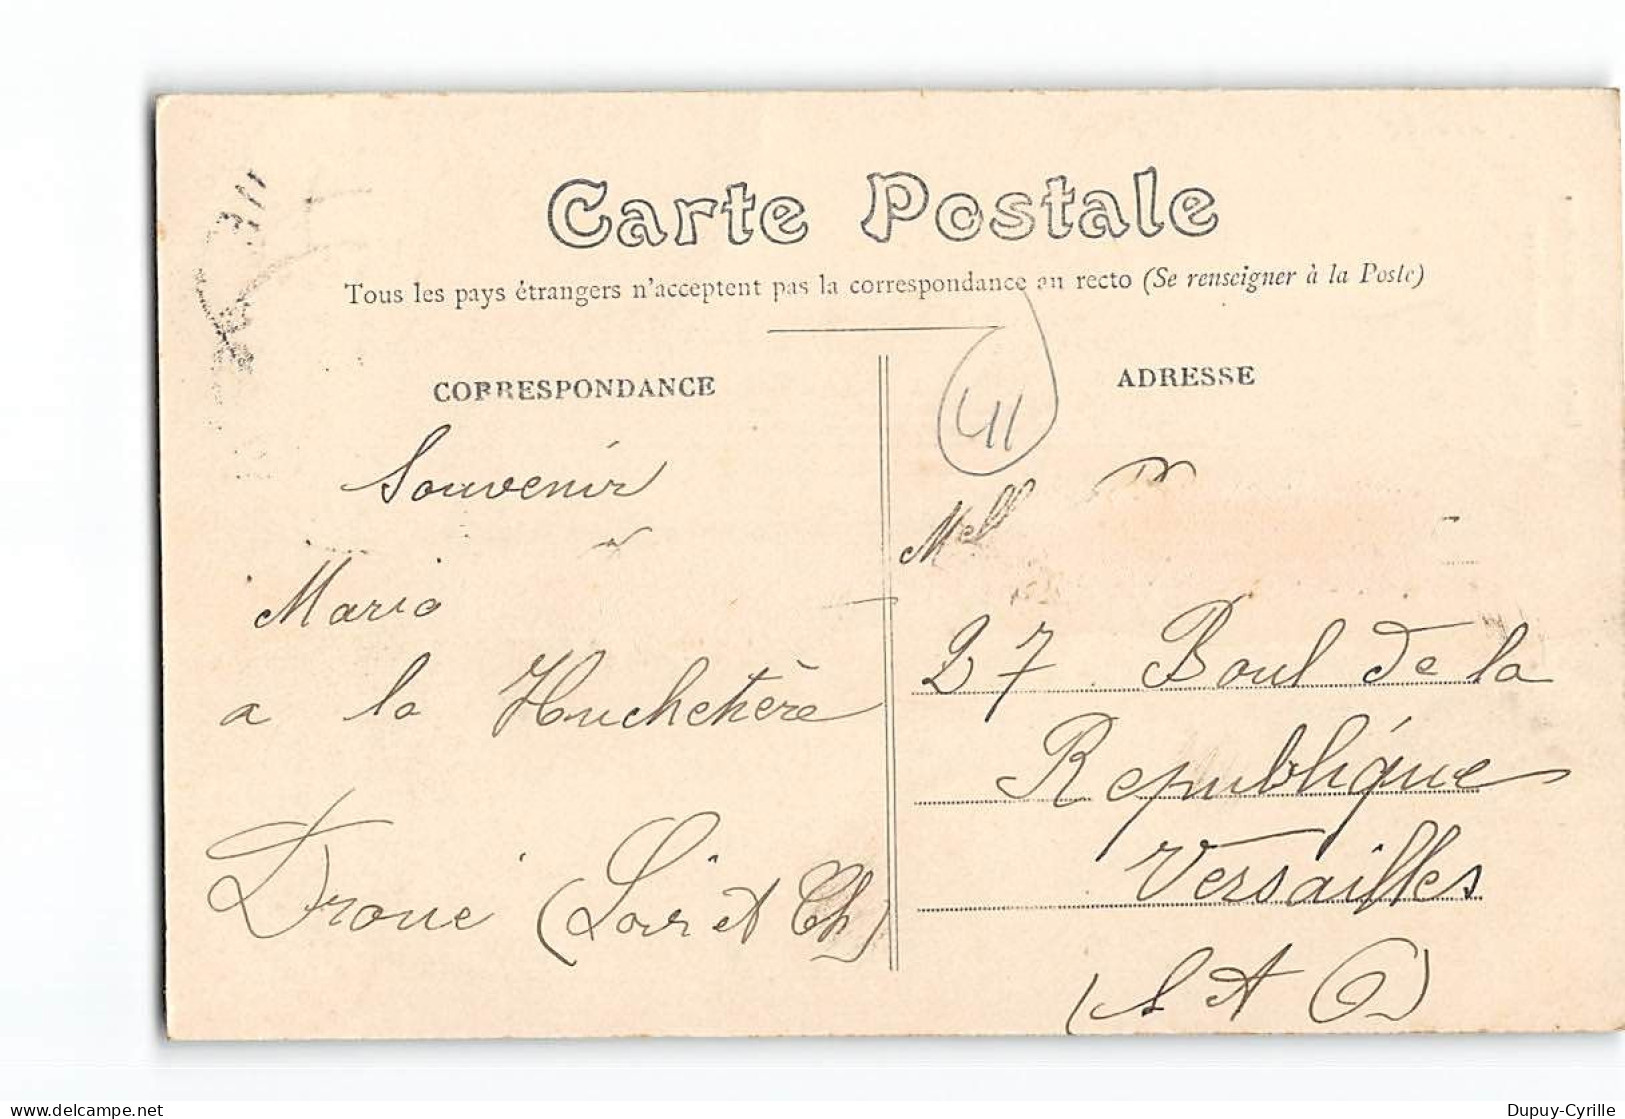 Carte Postale
Tous les pays étrangers n'acceptent pas la correspondance au recto (Se renseigner à la Poste)
CORRESPONDANCE
Souvenir
Maria
a la Huchetière
Droué (Loir et Ch)
ADRESSE
41
Mell
27 Boul de la
République
Versailles
(S et O)
delcampe.net
Dupuy-Cyrille